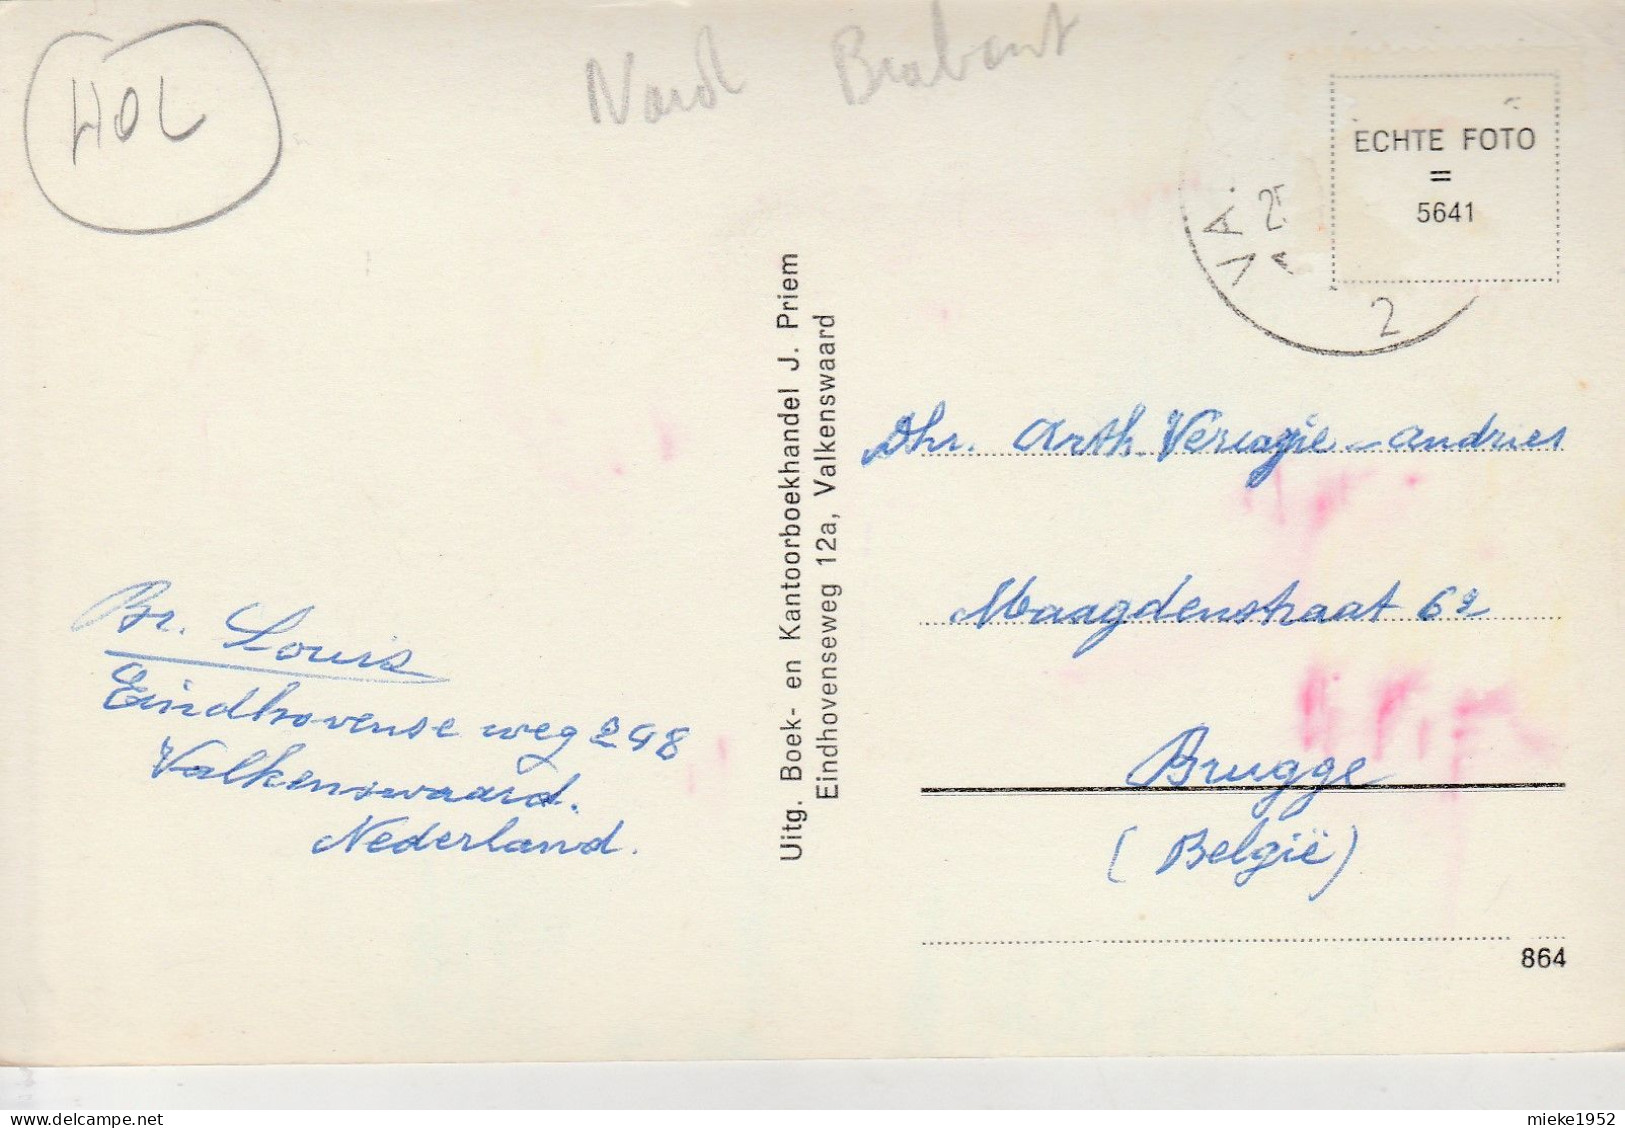 HOL
Nord Brabant
ECHTE FOTO
=
5641
VA
2
Uitg. Boek- en Kantoorboekhandel J. Priem
Eindhovenseweg 12a, Valkenswaard
Dhr. Arth. Vercozie-Andries
Maagdenstraat 62
Brugge
(België)
864
Br. Louis
Eindhovense weg 248
Valkenswaard.
Nederland.
delcampe.net
mieke1952